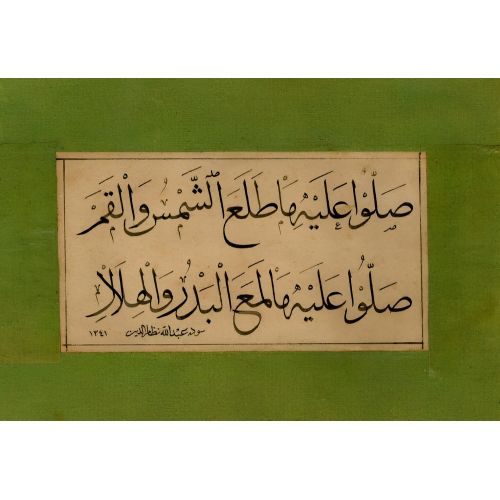 صَلُّوْا عَلَيْهِ مَاْ طَلَعَ الشَّمْسُ وَالْقَمَرْ
صَلُّوْا عَلَيْهِ مَاْ لَمَعَ الْبَدْرُ وَالْهِلَالْ
سوده عبدالله نظام الدين ١٣٤١